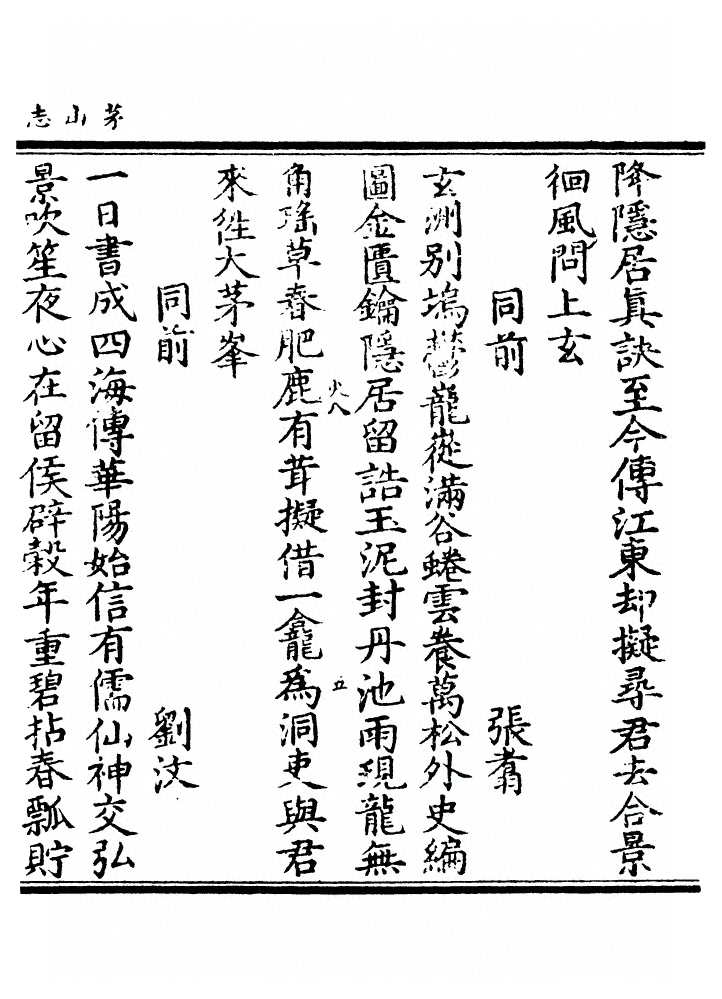 茅山志
降隱居眞訣至今傳江東却擬尋君去合景
徊風問上玄
同前 張翥
玄洲别塢鬱巃嵸滿谷蜷雲養萬松外史編
圖金匱鑰隱居留誥玉泥封丹池雨現龍無
角瑤草春肥鹿有茸擬借一龕爲洞吏與君
來徃大茅峯
同前 劉汶
一日書成四海傳華陽始信有儒仙神交弘
景吹笙夜心在留侯辟穀年重碧拈春瓢貯